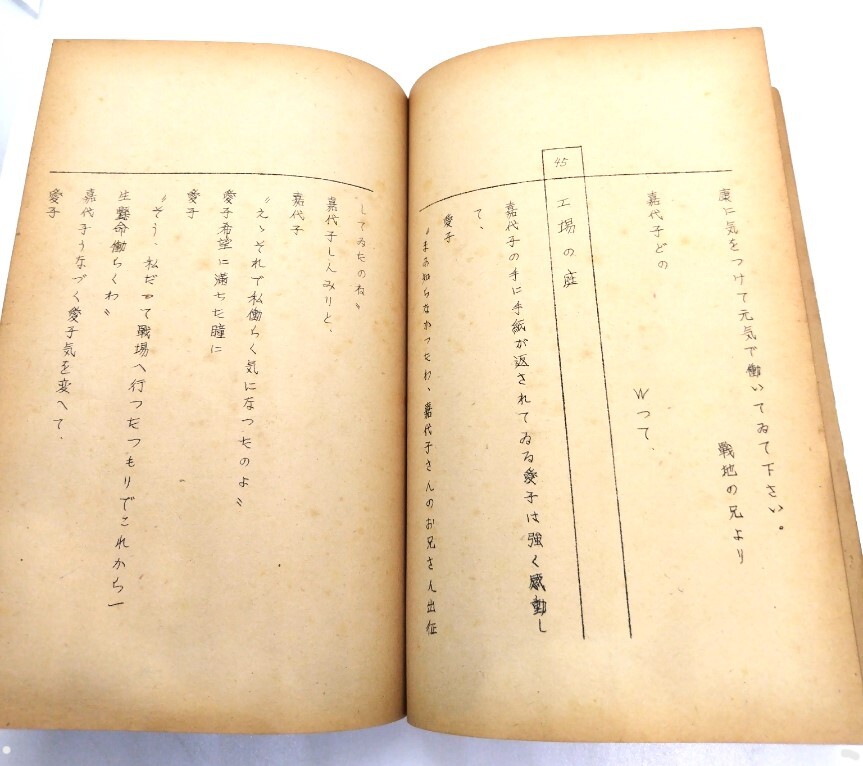 康に気をつけて元気で働いてゐて下さい。
戦地の兄より
嘉代子どの
Wつて、
45
工場の庭
嘉代子の手に手紙が返されてゐる愛子は強く感動し
て、
愛子
〝まあ知らなかつたわ、嘉代子さんのお兄さん出征
してゐたのね〟
嘉代子しんみりと、
嘉代子
〝えゝそれで私働らく気になつたのよ〟
愛子希望に満ちた瞳に
愛子
〝そう、私だつて戦場へ行つたつもりでこれから一
生懸命働らくわ〟
嘉代子うなづく愛子気を変へて、
愛子